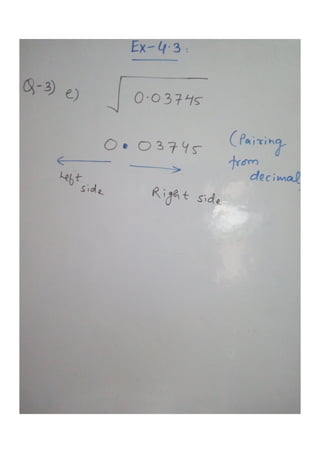 Ex-4.3:
Q-3) e) √0.03745
0.03745 (Pairing
from
decimal
Left
side
Right side